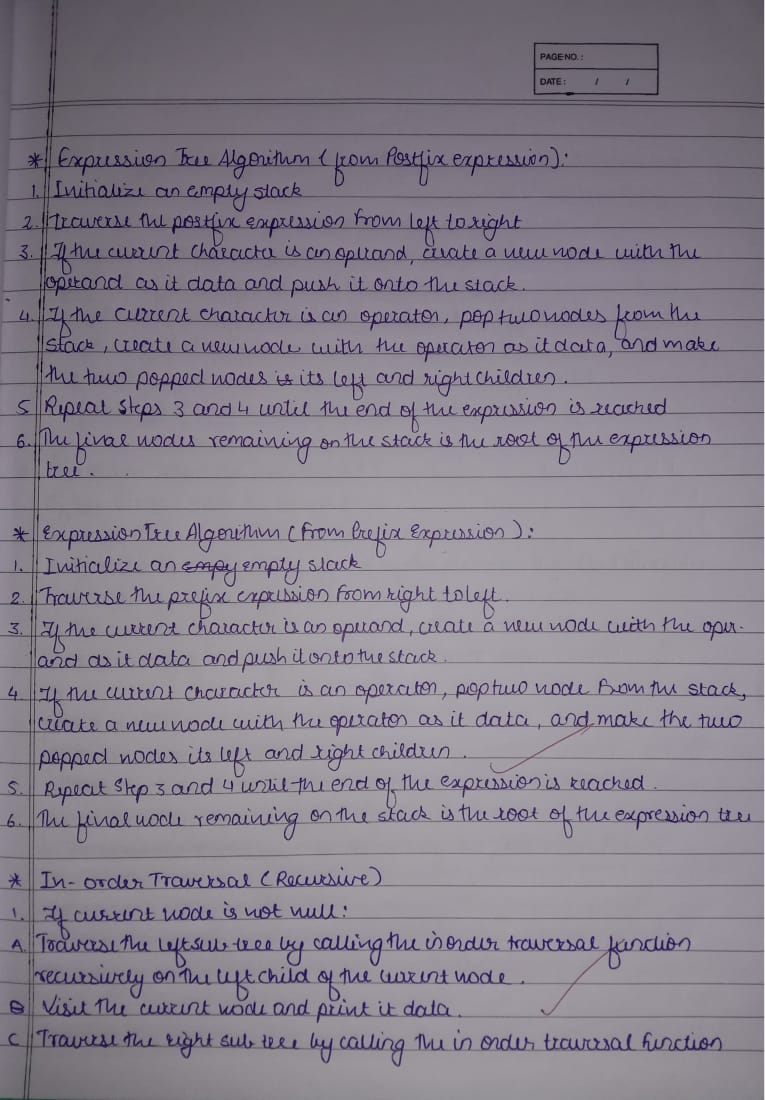 PAGE NO. :
DATE : / /
* Expression Tree Algorithm (from Postfix expression):
1. Initialize an empty stack
2. Traverse the postfix expression from left to right
3. If the current character is an operand, create a new node with the
operand as it data and push it onto the stack.
4. If the current character is an operator, pop two nodes from the
stack, create a new node with the operator as it data, and make
the two popped nodes its left and right children.
5 Repeat steps 3 and 4 until the end of the expression is reached
6. The final nodes remaining on the stack is the root of the expression
tree.
* Expression Tree Algorithm (From Prefix Expression):
1. Initialize an empy empty stack
2. Traverse the prefix expression from right to left.
3. If the current character is an operand, create a new node with the oper-
and as it data and push it onto the stack.
4 If the current character is an operator, pop two node from the stack,
create a new node with the operator as it data, and make the two
popped nodes its left and right children.
5. Repeat step 3 and 4 until the end of the expression is reached.
6. The final node remaining on the stack is the root of the expression tree
* In-order Traversal (Recursive)
1. If current node is not null:
A. Traverse the left sub tree by calling the inorder traversal function
recursively on the left child of the current node.
B Visit the current node and print it data.
C Traverse the right sub tree by calling the in order traversal function